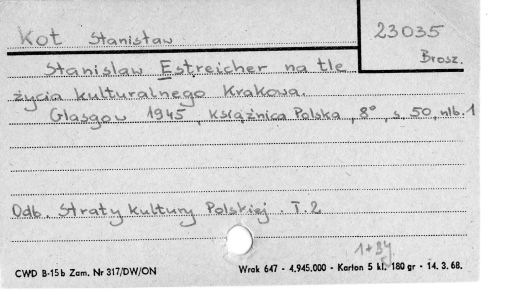 Kot Stanisław
23035
Brosz.
Stanisław Estreicher na tle
życia kulturalnego Krakowa.
Glasgow 1945, Książnica Polska, 8°, s. 50, nlb. 1
Odb. Straty kultury Polskiej. T. 2
CWD B-15b Zam. Nr 317/DW/ON
Wrak 647 - 4.945.000 - Karton 5 kl. 180 gr - 14. 3. 68.